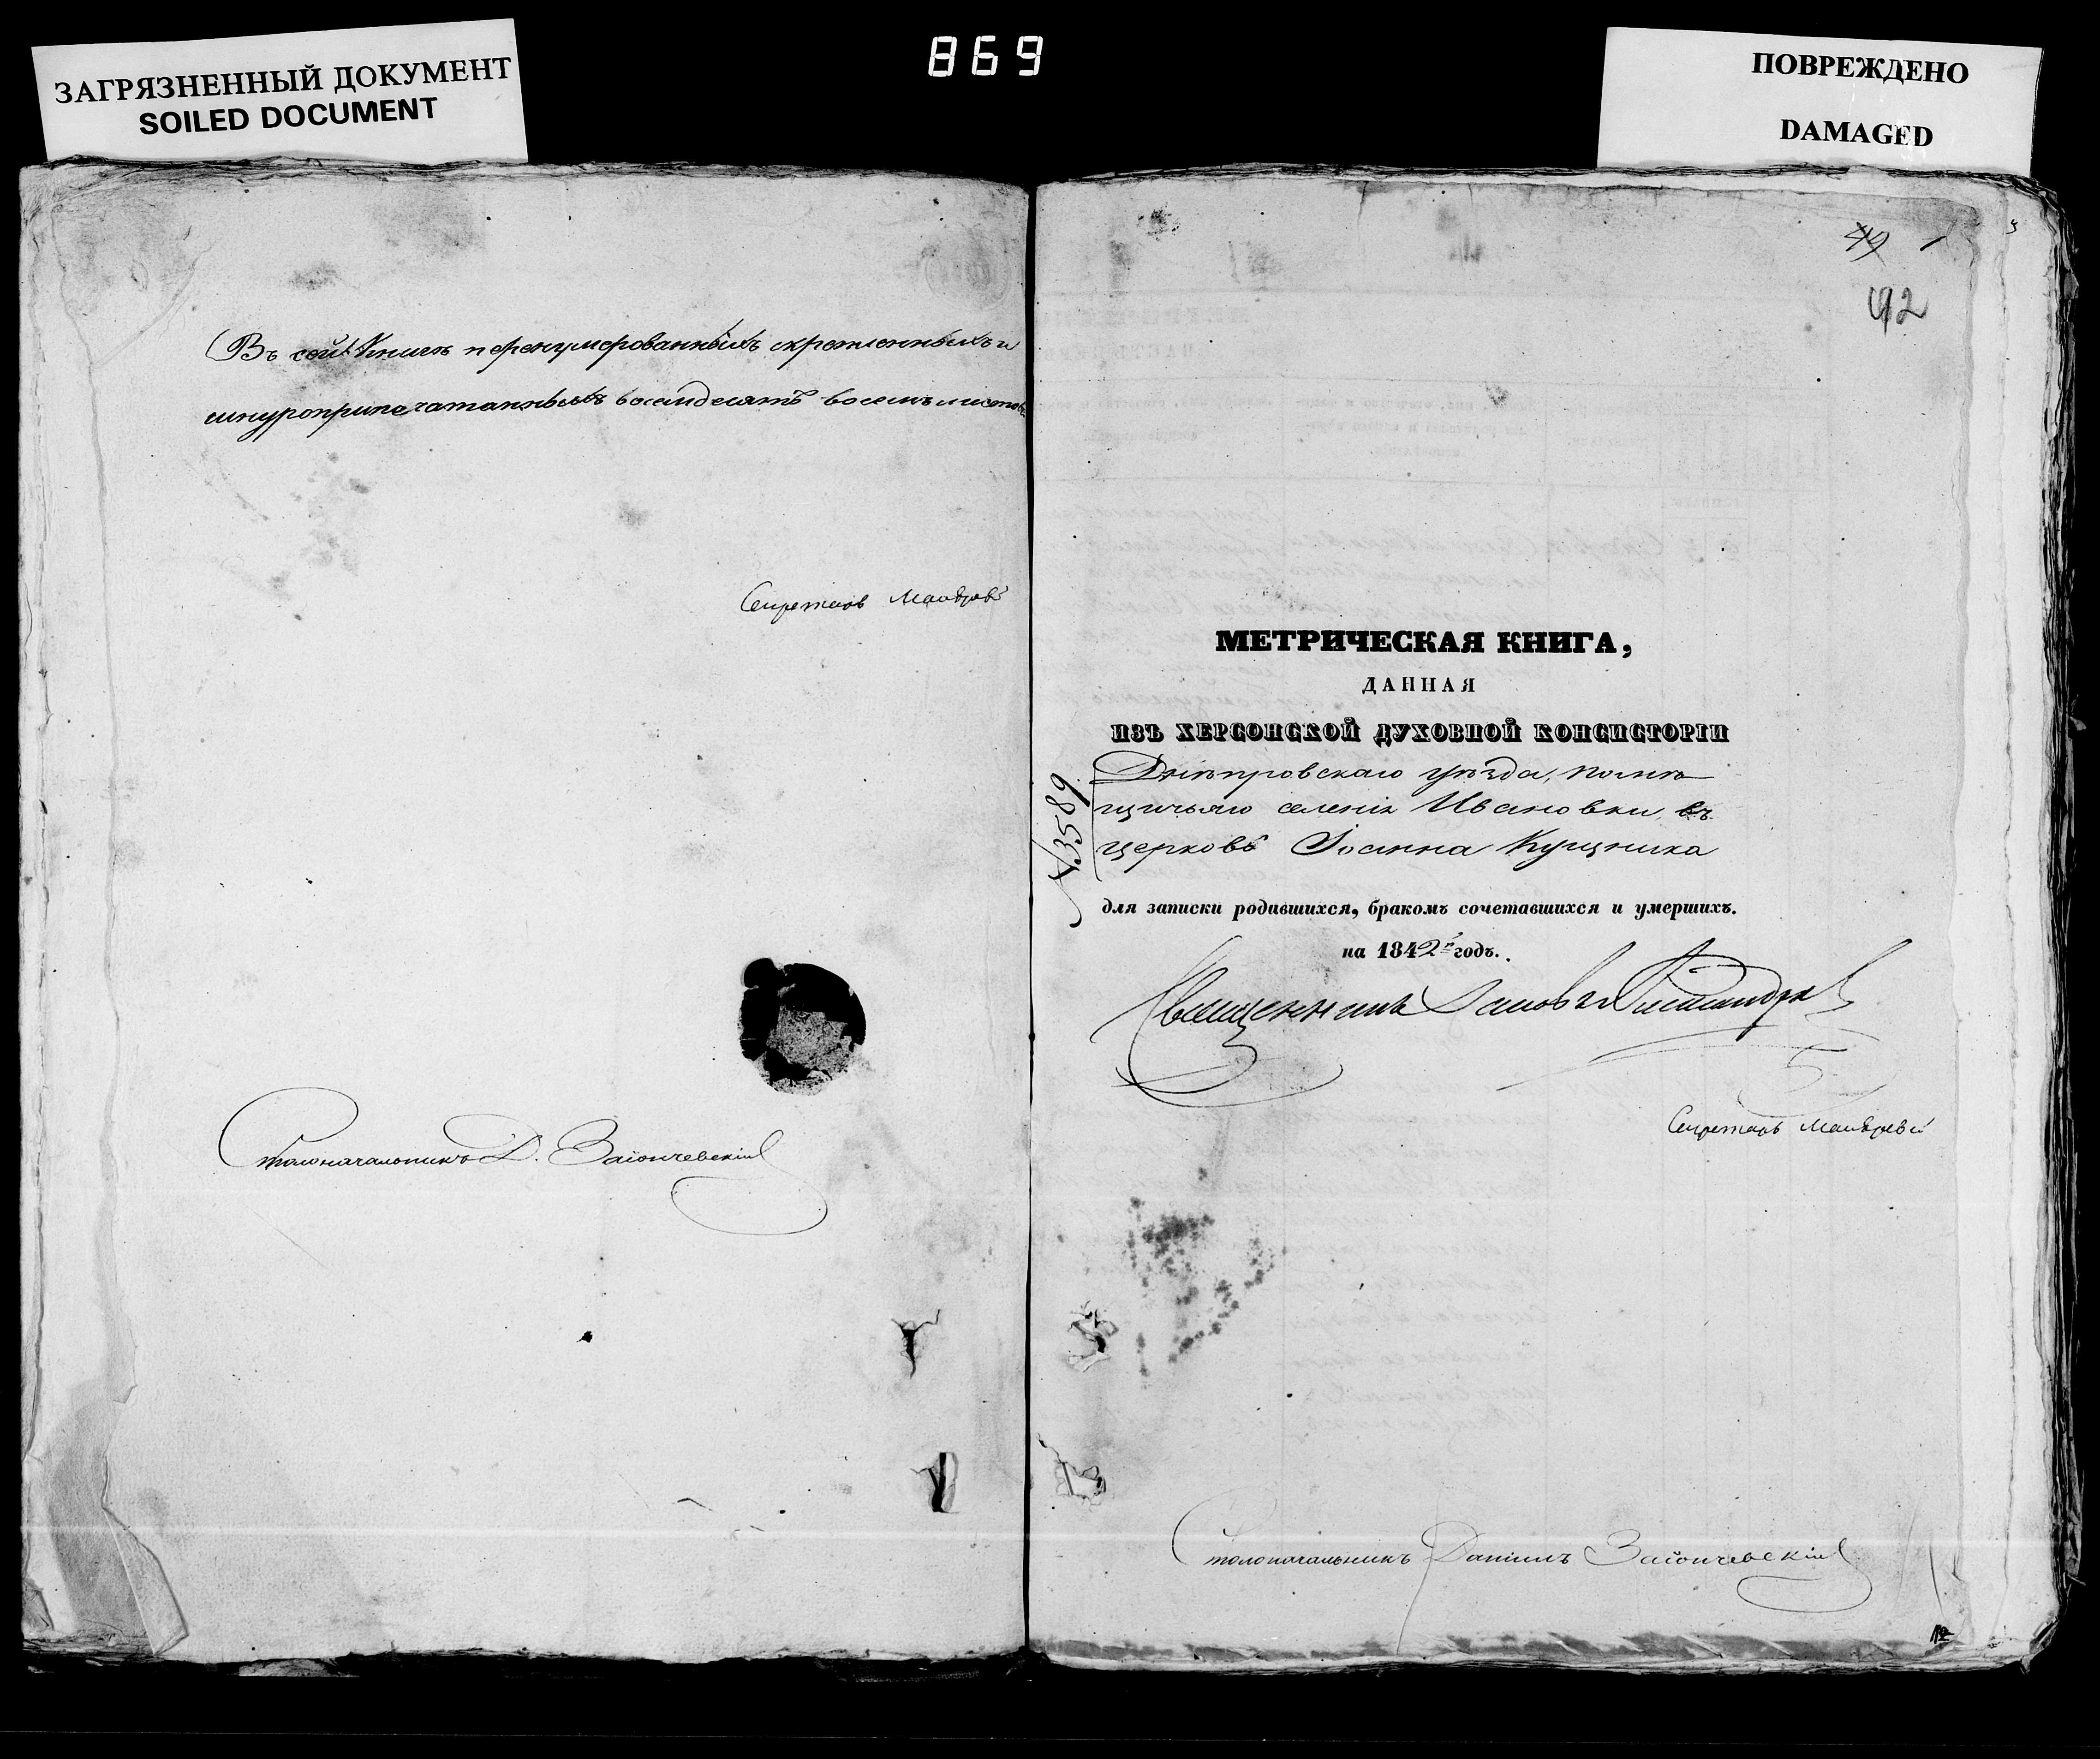 ЗАГРЯЗНЕННЫЙ ДОКУМЕНТ
SOILED DOCUMENT
869
ПОВРЕЖДЕНО
DAMAGED
Въ сей Книгѣ перенумерованныхъ скрепленныхъ и
шнуроприпечатанныхъ восемдесятъ восемь листовъ
Секретарь
Столоначальникъ Д. Заіончевскій
92
МЕТРИЧЕСКАЯ КНИГА,
ДАННАЯ
ИЗЪ ХЕРСОНСКОЙ ДУХОВНОЙ КОНСИСТОРІИ
Днѣпровскаго уѣзда, помѣ
щичьяго селенія Ивановки, въ
церковь Іоанна Кущника
№3589
для записки родившихся, бракомъ сочетавшихся и умершихъ.
на 1842й годъ.
Священникъ
Секретарь
Столоначальникъ Даніилъ Заіончевскій